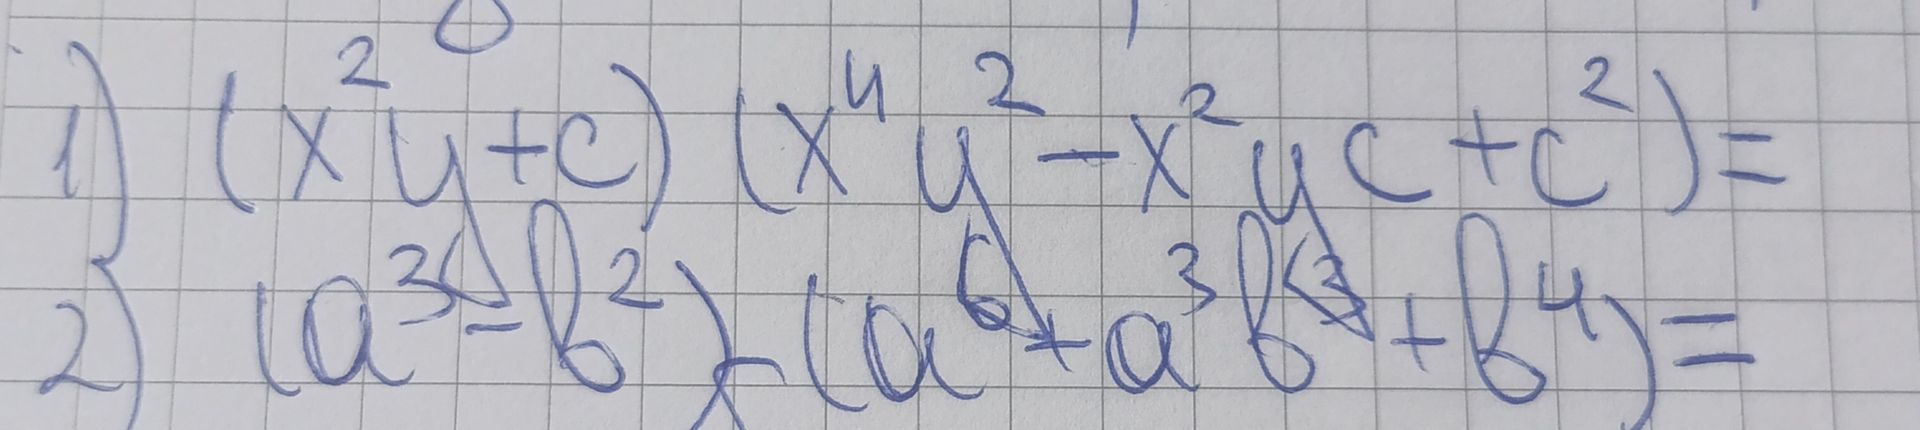 1) (x²y+c) (x⁴y²-x²yc+c²)=
2) (a³-b²) (a⁶+a³b³+b⁴)=